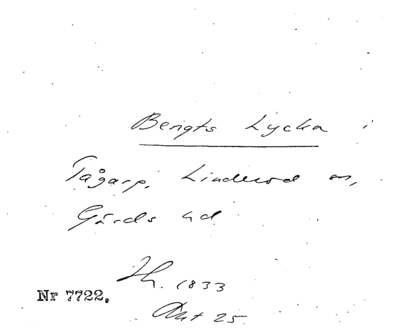 Bengts Lycka i
Tågarp, Linderod sn,
Gärds hd
Jh. 1833
Nr 7722.
Akt 25